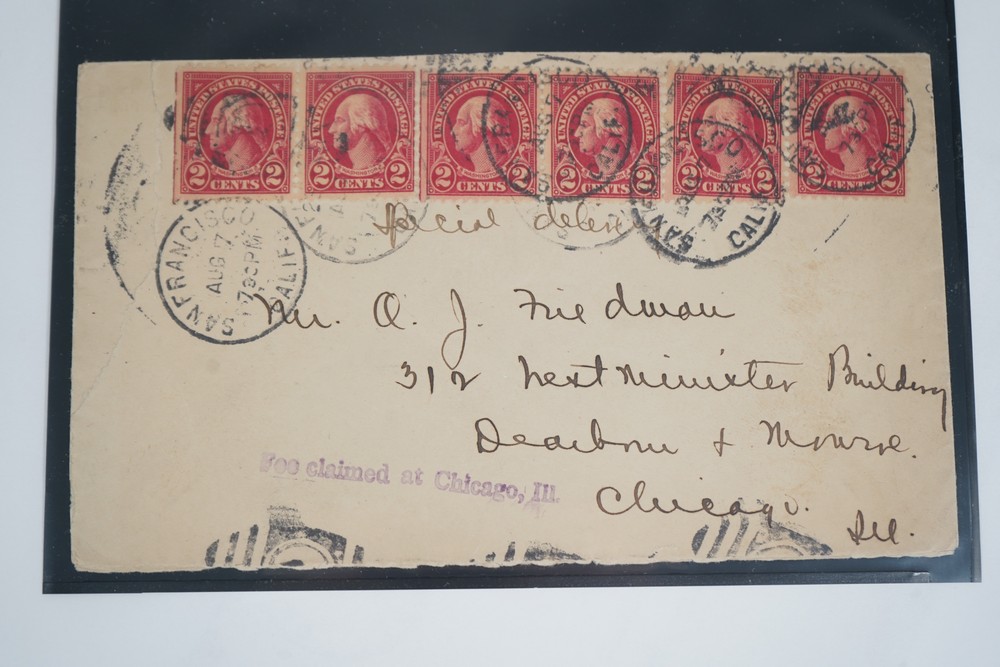 UNITED STATES POSTAGE UNITED STATES POSTAGE UNITED STATES POSTAGE UNITED STATES POSTAGE UNITED STATES POSTAGE UNITED STATES POSTAGE
2 CENTS 2 2 CENTS 2 2 CENTS 2 2 CENTS 2 2 CENTS 2 2 CENTS 2
Special
SAN FRANCISCO CALIF.
AUG 7
730PM
Mr. O. J. Friedman
312 Westminister Building
Dearborn & Monroe.
Fee claimed at Chicago, Ill.
Chicago.
Ill.